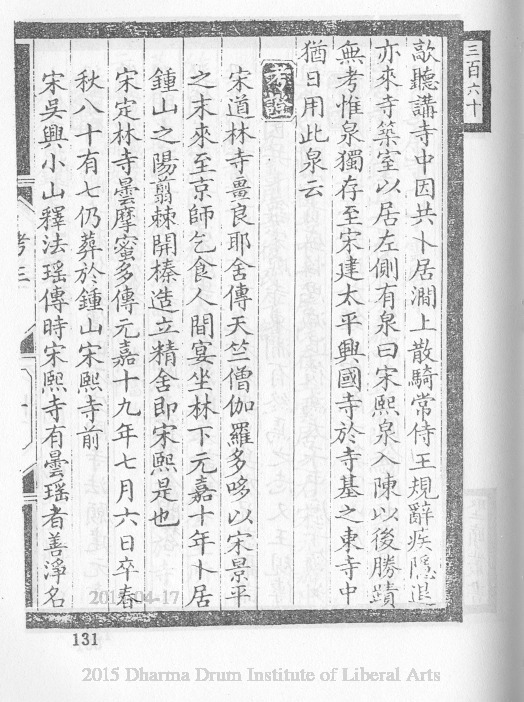 三百六十
歊聽講寺中因共卜居澗上散騎常侍王規辭疾隱退
亦來寺築室以居左側有泉曰宋熙泉入陳以後勝蹟
無考惟泉獨存至宋建太平興國寺於寺基之東寺中
猶日用此泉云
考證
宋道林寺畺良耶舍傳天竺僧伽羅多哆以宋景平
之末來至京師乞食人間宴坐林下元嘉十年卜居
鍾山之陽翦棘開榛造立精舍即宋熙是也
宋定林寺曇摩蜜多傳元嘉十九年七月六日卒春
秋八十有七仍葬於鍾山宋熙寺前
宋吳興小山釋法瑶傳時宋熙寺有曇瑶者善淨名
考三
131
2015 Dharma Drum Institute of Liberal Arts